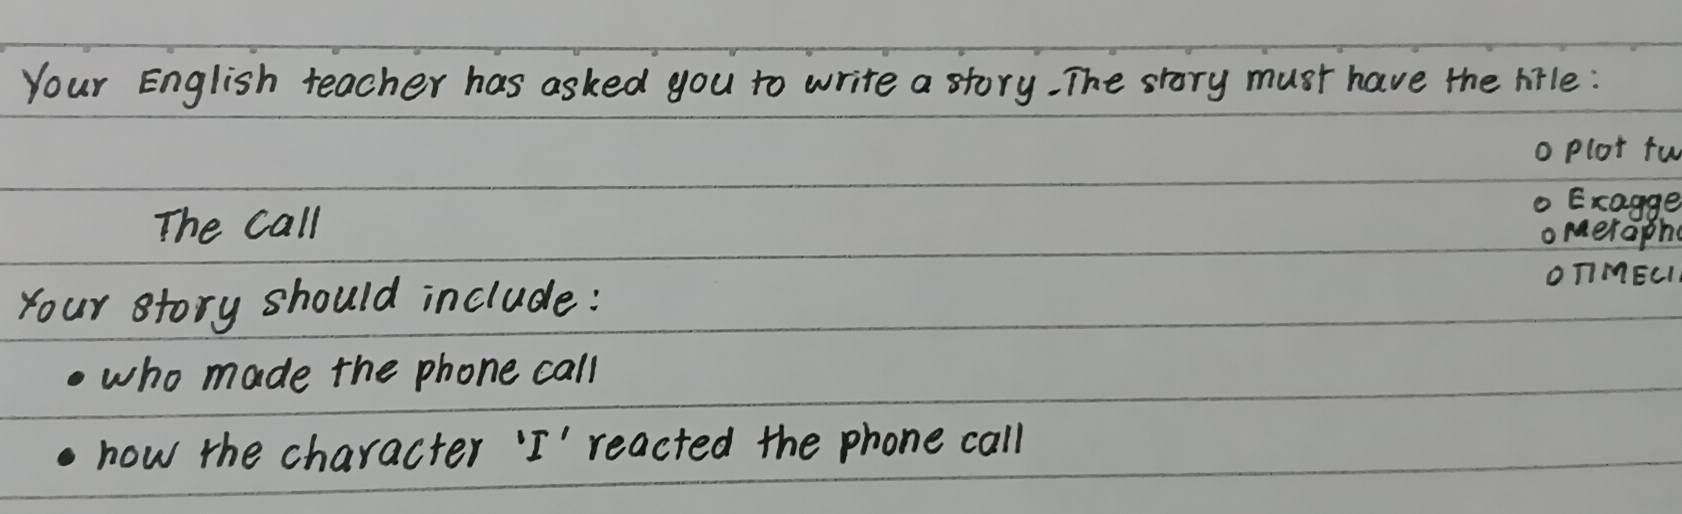 Your English teacher has asked you to write a story. The story must have the title:
o Plot tw
The Call
o Exagge
o Metapho
o TIMECLI
Your story should include:
• who made the phone call
• how the character 'I' reacted the phone call